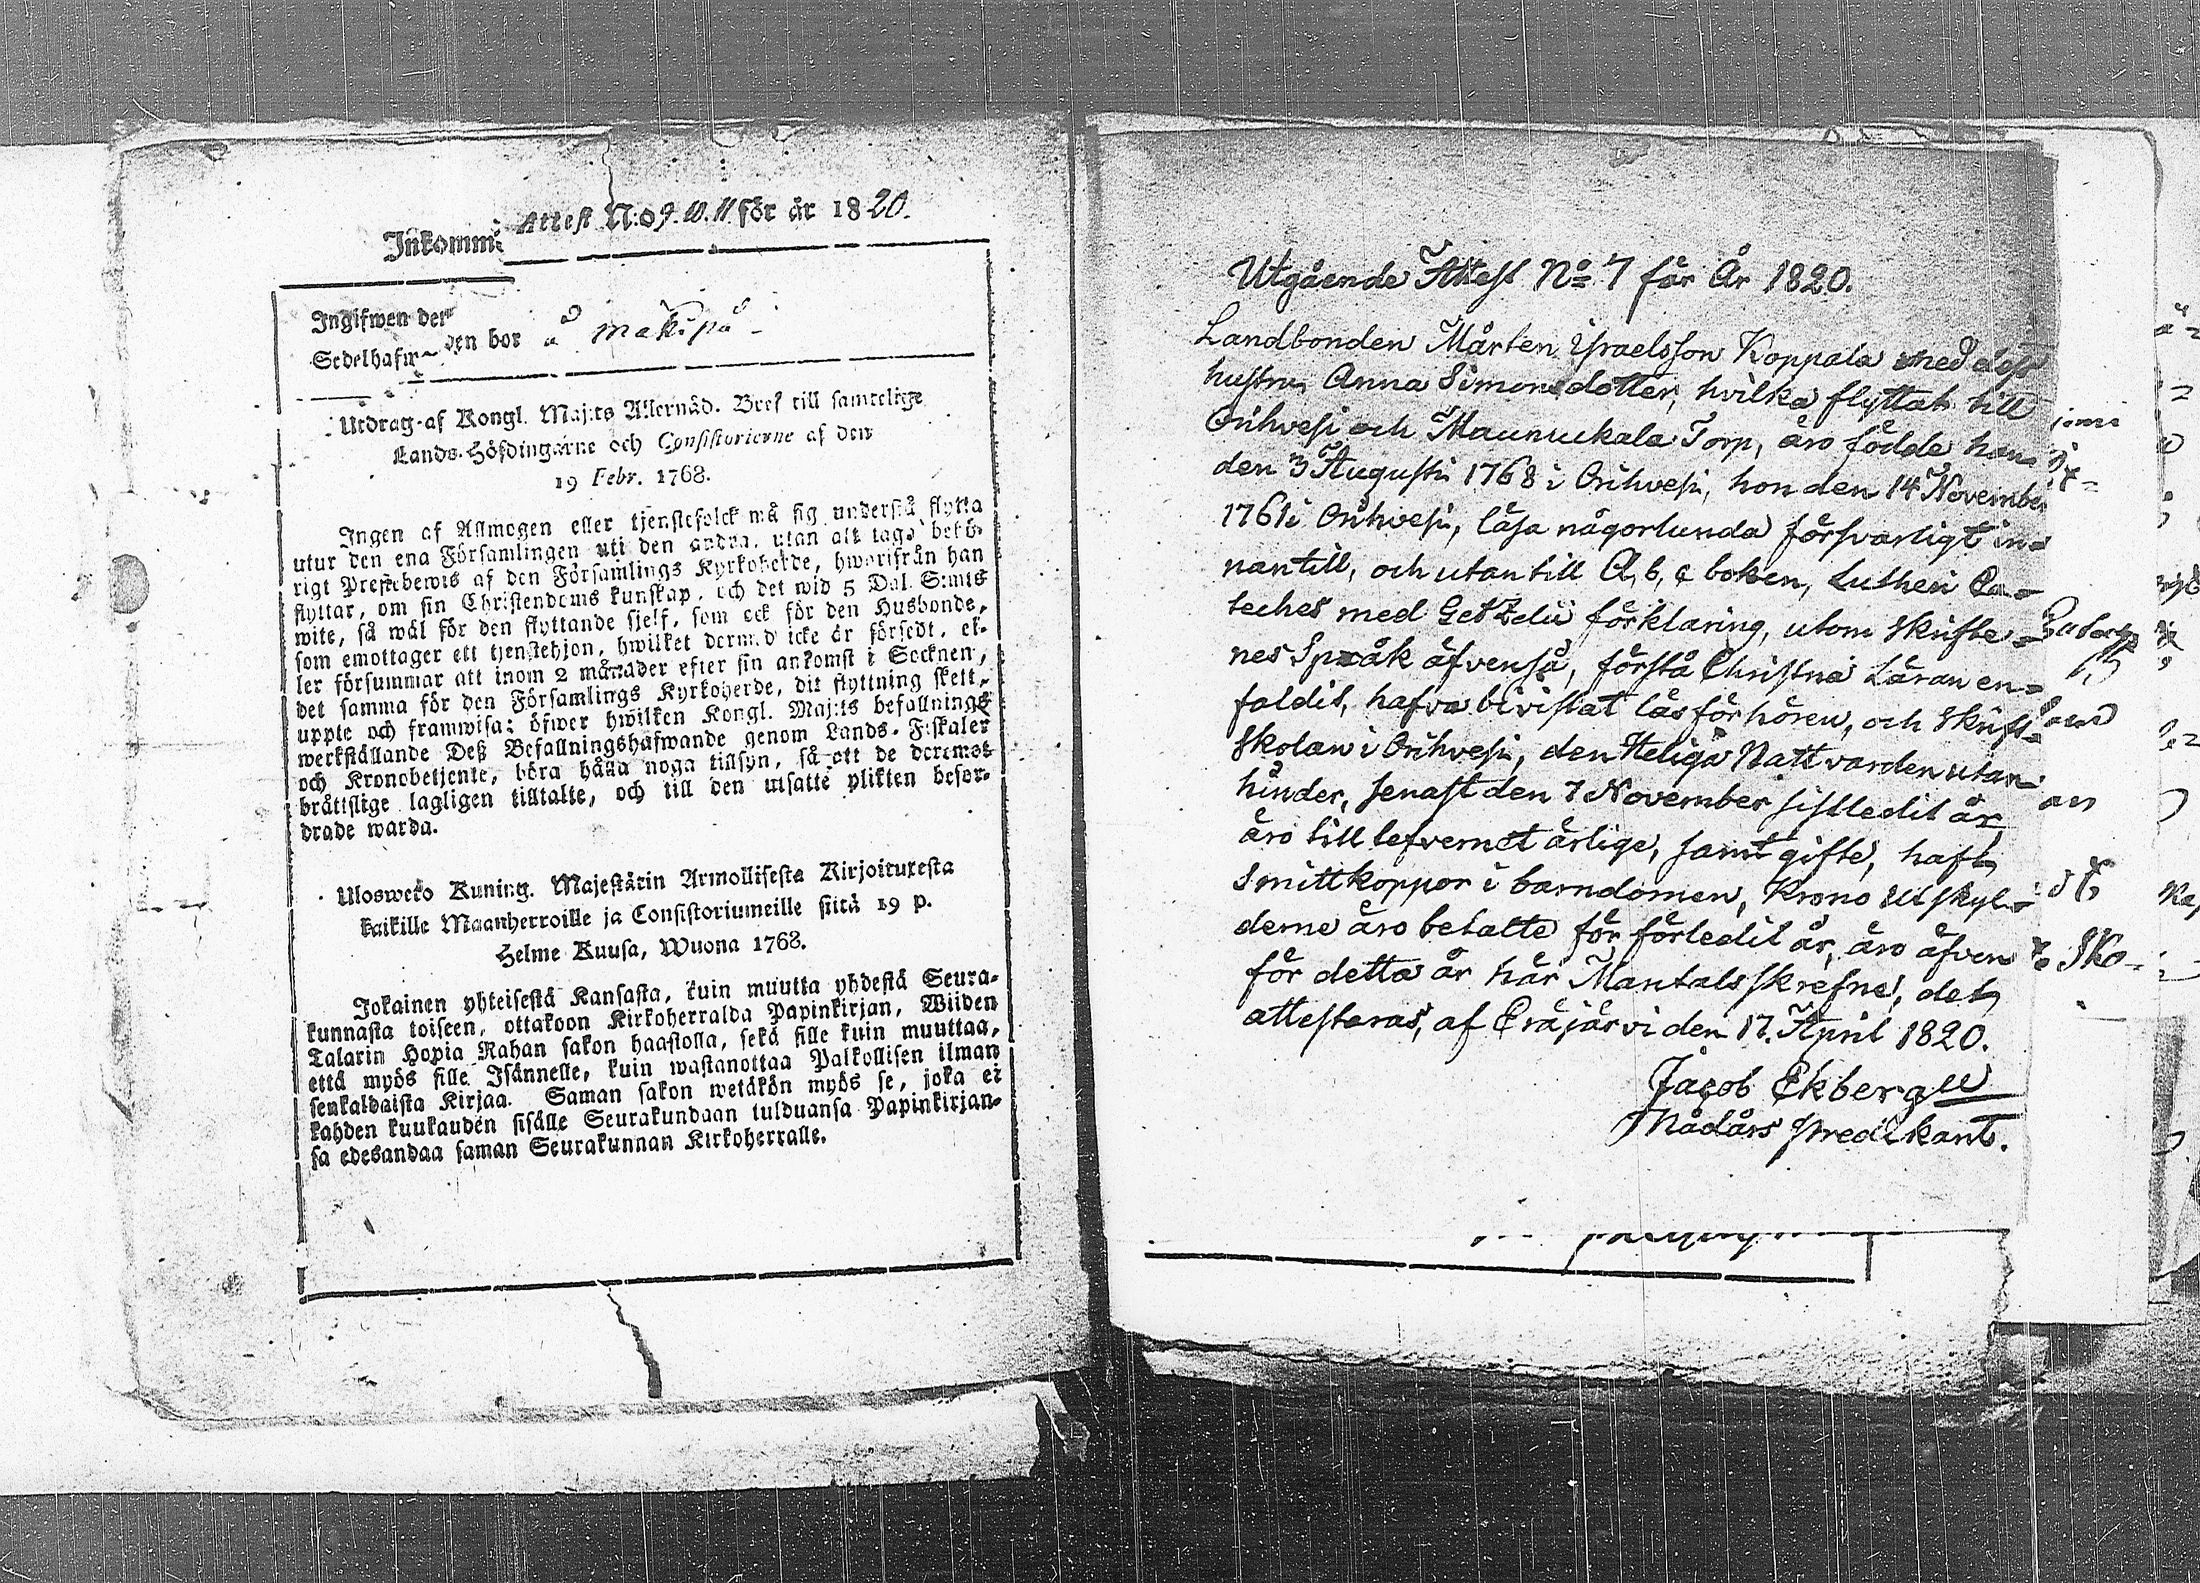 Inkomm: Attest N:o 9.10.11 för år 1820.
Ingifwen den
Sedelhafw~den bor å mäkipä
Utdrag af Kongl. Maj:ts Allernåd. Bref till samtelige
Lands-Höfdingarne och Consistorierne af den
19 Febr. 1768.
Ingen af Allmogen eller tjenstefolck må sig understå flytta
utur den ena Församlingen uti den andra, utan att taga behö-
rigt Prestebewis af den Församlings Kyrkoherde, hwarifrån han
flyttar, om sin Christendoms kunskap, och det wid 5 Dal. S:mts
wite, så wäl för den flyttande sjelf, som ock för den Husbonde,
som emottager ett tjenstehjon, hwilket dermed icke är försedt, el-
ler försummar att inom 2 månader efter sin ankomst i Socknen,
det samma för den Församlings Kyrkoherde, dit flyttning skett,
uppte och framwisa; öfwer hwilken Kongl. Maj:ts befallnings
werkställande Deß Befallningshafwande genom Lands-Fiskaler
och Kronobetjente, böra hålla noga tillsyn, så att de deremot
bråttslige lagligen tilltalte, och till den utsatte plikten befor-
drade warda.
Ulosweto Kuning. Majestätin Armollisesta Kirjoituxesta
kaikille Maanherroille ja Consistoriumeille siitä 19 p.
Helme Kuusa, Wuona 1768.
Jokainen yhteisestä Kansasta, kuin muutta yhdestä Seura-
kunnasta toiseen, ottakoon Kirkoherralda Papinkirjan, Wiiden
Talarin Hopia Rahan sakon haastolla, sekä sille kuin muuttaa,
että myös sille Isännelle, kuin wastanottaa Palkollisen ilman
senkaldaista Kirjaa. Saman sakon wetäkön myös se, joka ei
kahden kuukauden sisälle Seurakundaan tulduansa Papinkirjan-
sa edesandaa saman Seurakunnan Kirkoherralle.
Utgående Attest No 7 för År 1820.
Landbonden Mårten Israelsson Koppala med dess
hustru Anna Simonsdotter, hvilka flyttat till
Orihvesi och Maunukala Torp, äro födde han
den 3 Augusti 1768 i Orihvesi, hon den 14 November
1761 i Orihvesi, läsa någorlunda försvarligt in-
nantill, och utantill A, b, c boken, Lutheri Ca-
teches med Getzelii förklaring, utom Skrifte-
nes Språk äfvenså, förstå Christna Läran en-
faldit, hafva bivistat läsförhören, och Skrift-
Skolan i Orihvesi, den Heliga Nattvarden utan
hinder, senast den 7 November sistledit år,
äro till lefvernet ärlige, samt gifte, haft
Smittkoppor i barndomen, Krono Utskyl-
derne äro betalte för förledit år, äro äfven
för detta år här Mantalsskrefne, det
attesteras, af Eräjärvi den 17. April 1820.
Jacob Ekberg
Mådårs predikant.